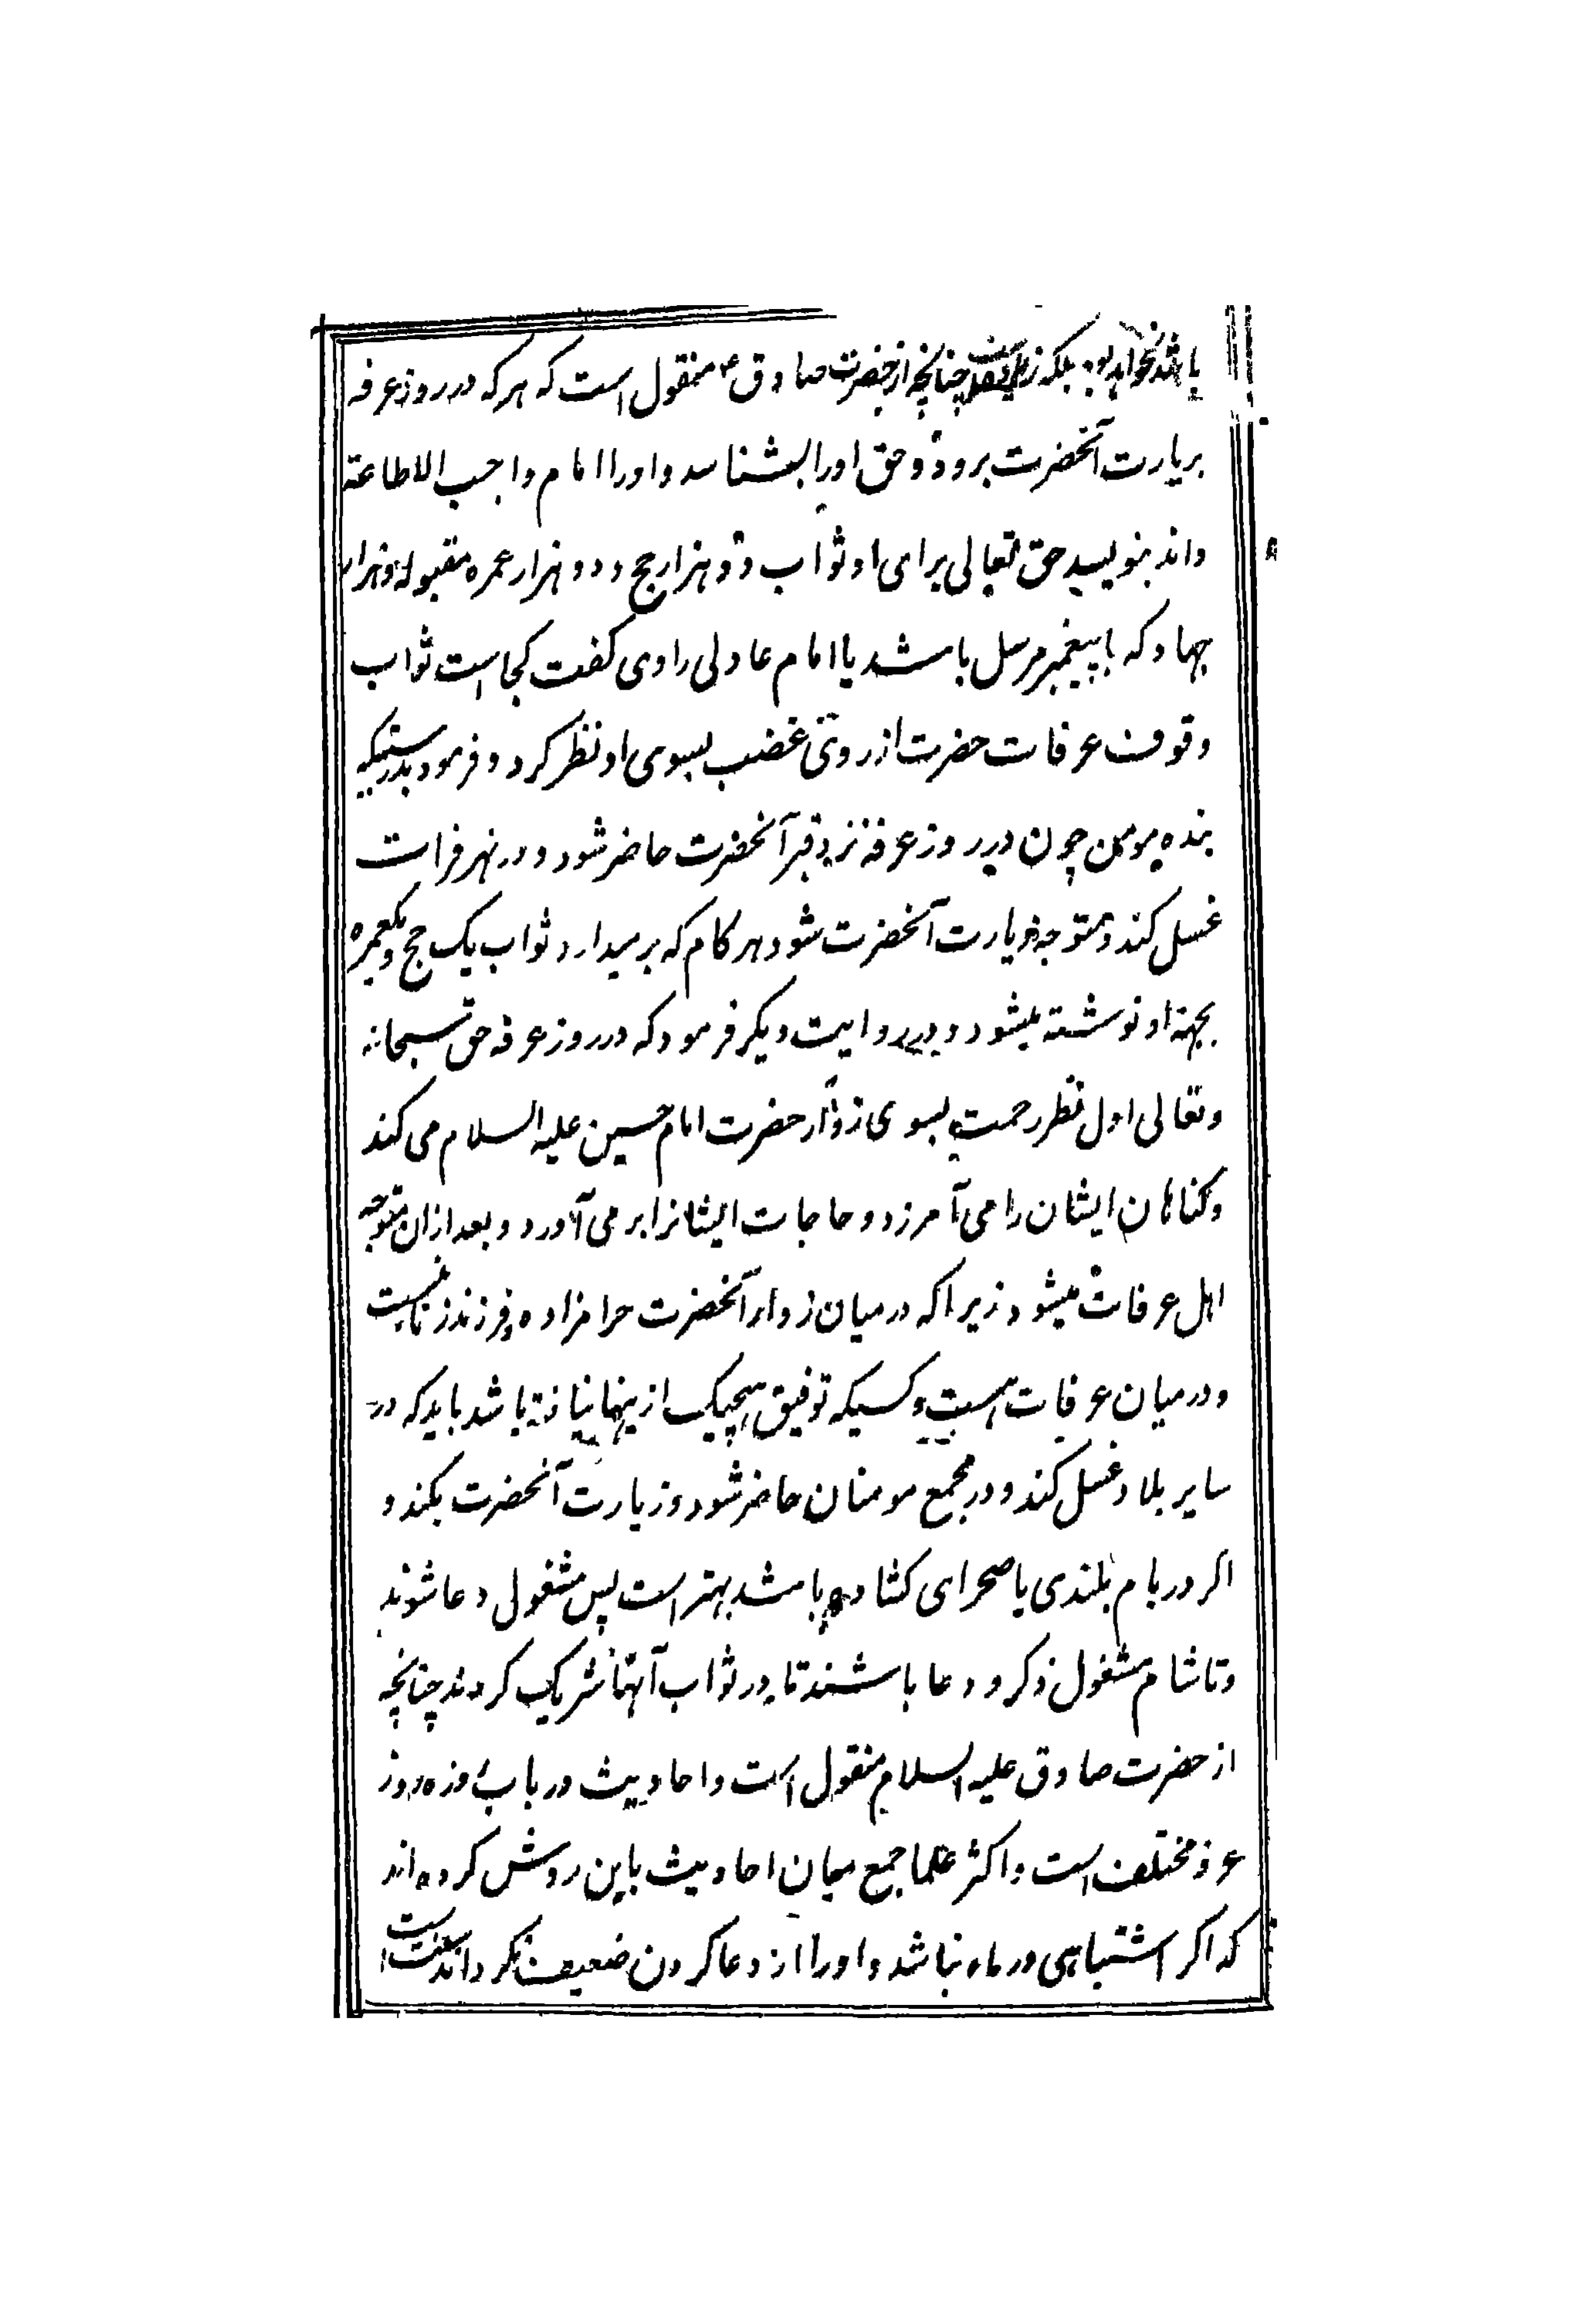 باشد نخواهد بود بلکه چنانچه از حضرت صادق ع منقول است که هر که در روز عرفه
بزیارت آنحضرت برود و حق اورا بشناسد و اورا امام واجب الاطاعة
داند بنویسد حق تعالی برای او ثواب دو هزار حج و دو هزار عمره مقبوله و هزار
جهاد که با پیغمبر مرسل باشد یا امام عادلی راوی کفت کجاست ثواب
وقوف عرفات حضرت از روی غضب بسوی او نظر کرد و فرمود بدرستیکه
بنده مومن چون در روز عرفه نزد قبر آنحضرت حاضر شود و در نهر فرات
غسل کند و متوجه زیارت آنحضرت شود هر کام که بر میدارد ثواب یک حج و یکعمره
بجهة او نوشته میشود و در روایت دیکر فرمود که در روز عرفه حق سبحانه
وتعالی اول نظر رحمت بسوی زوار حضرت امام حسین علیه السلام می کند
و کناهان ایشان را می آمرزد و حاجات ایشانرا بر می آورد و بعد از ان متوجه
اهل عرفات میشود زیرا که در میان زوار آنحضرت حرامزاده و فرزند زنا نیست
و در میان عرفات هست و کسیکه توفیق هیچیک از ینها نیافته باشد باید که در
سایر بلاد غسل کند و در مجمع مومنان حاضر شود و زیارت آنحضرت بکند و
اکر در بام بلندی یا صحرای کشاده باشد بهتر است پس مشغول دعا شوند
و تا شام مشغول ذکر و دعا باشند تا در ثواب آنها شریک کردند چنانچه
از حضرت صادق علیه السلام منقول است و احادیث در باب روزه روز
عرفه مختلف است و اکثر علما جمع میان احادیث باین روش کرده اند
که اکر اشتباهی در ماه نباشد و اورا از دعا کردن ضعیف نکرداند سنت است